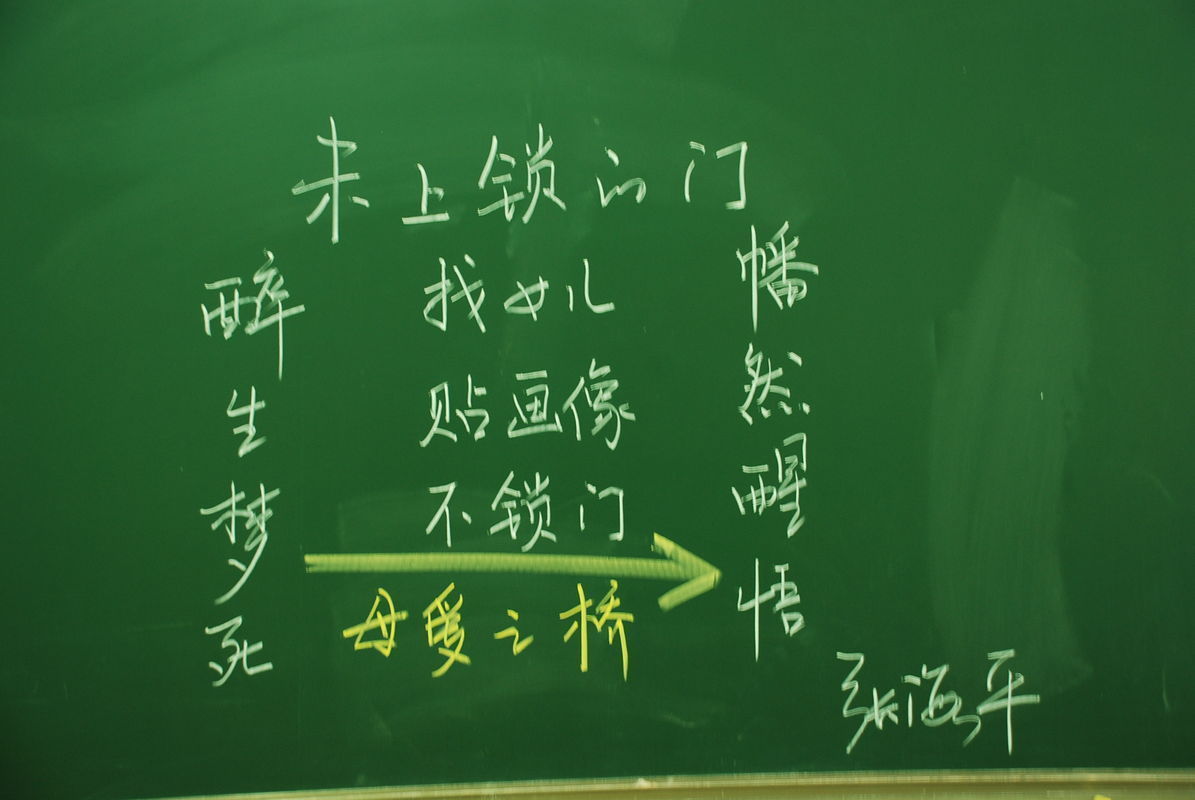 未上锁的门
醉生梦死
找女儿
贴画像
不锁门
母爱之桥
幡然醒悟
张海平